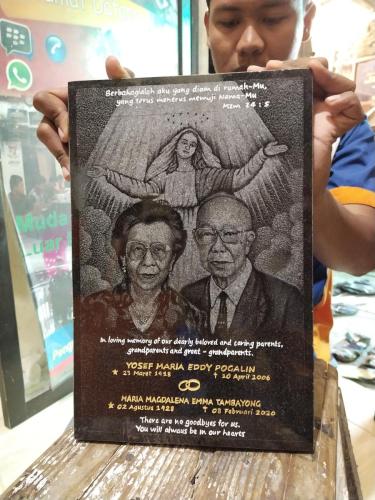 Berbahagialah aku yang diam di rumah-Mu,
yang terus menerus memuji Nama-Mu
In loving memory of our dearly beloved and caring parents,
grandparents and great - grandparents.
YOSEF MARIA EDDY POGALIN
★ 23 Maret 1928 ✝ 20 April 2006
MARIA MAGDALENA EMMA TAMBAYONG
★ 02 Agustus 1928 ✝ 08 Februari 2020
There are no goodbyes for us.
You will always be in our hearts